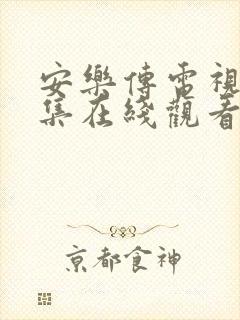 安樂傳電視
集在綫觀看
京都食神